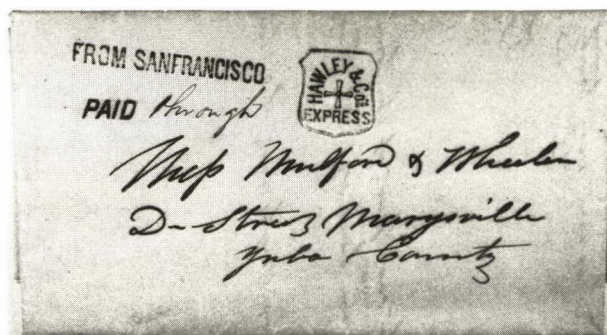 FROM SANFRANCISCO
PAID through
HAWLEY & Co's
EXPRESS
Mess Mulford & Wheeler
D- Street Marysville
Yuba County